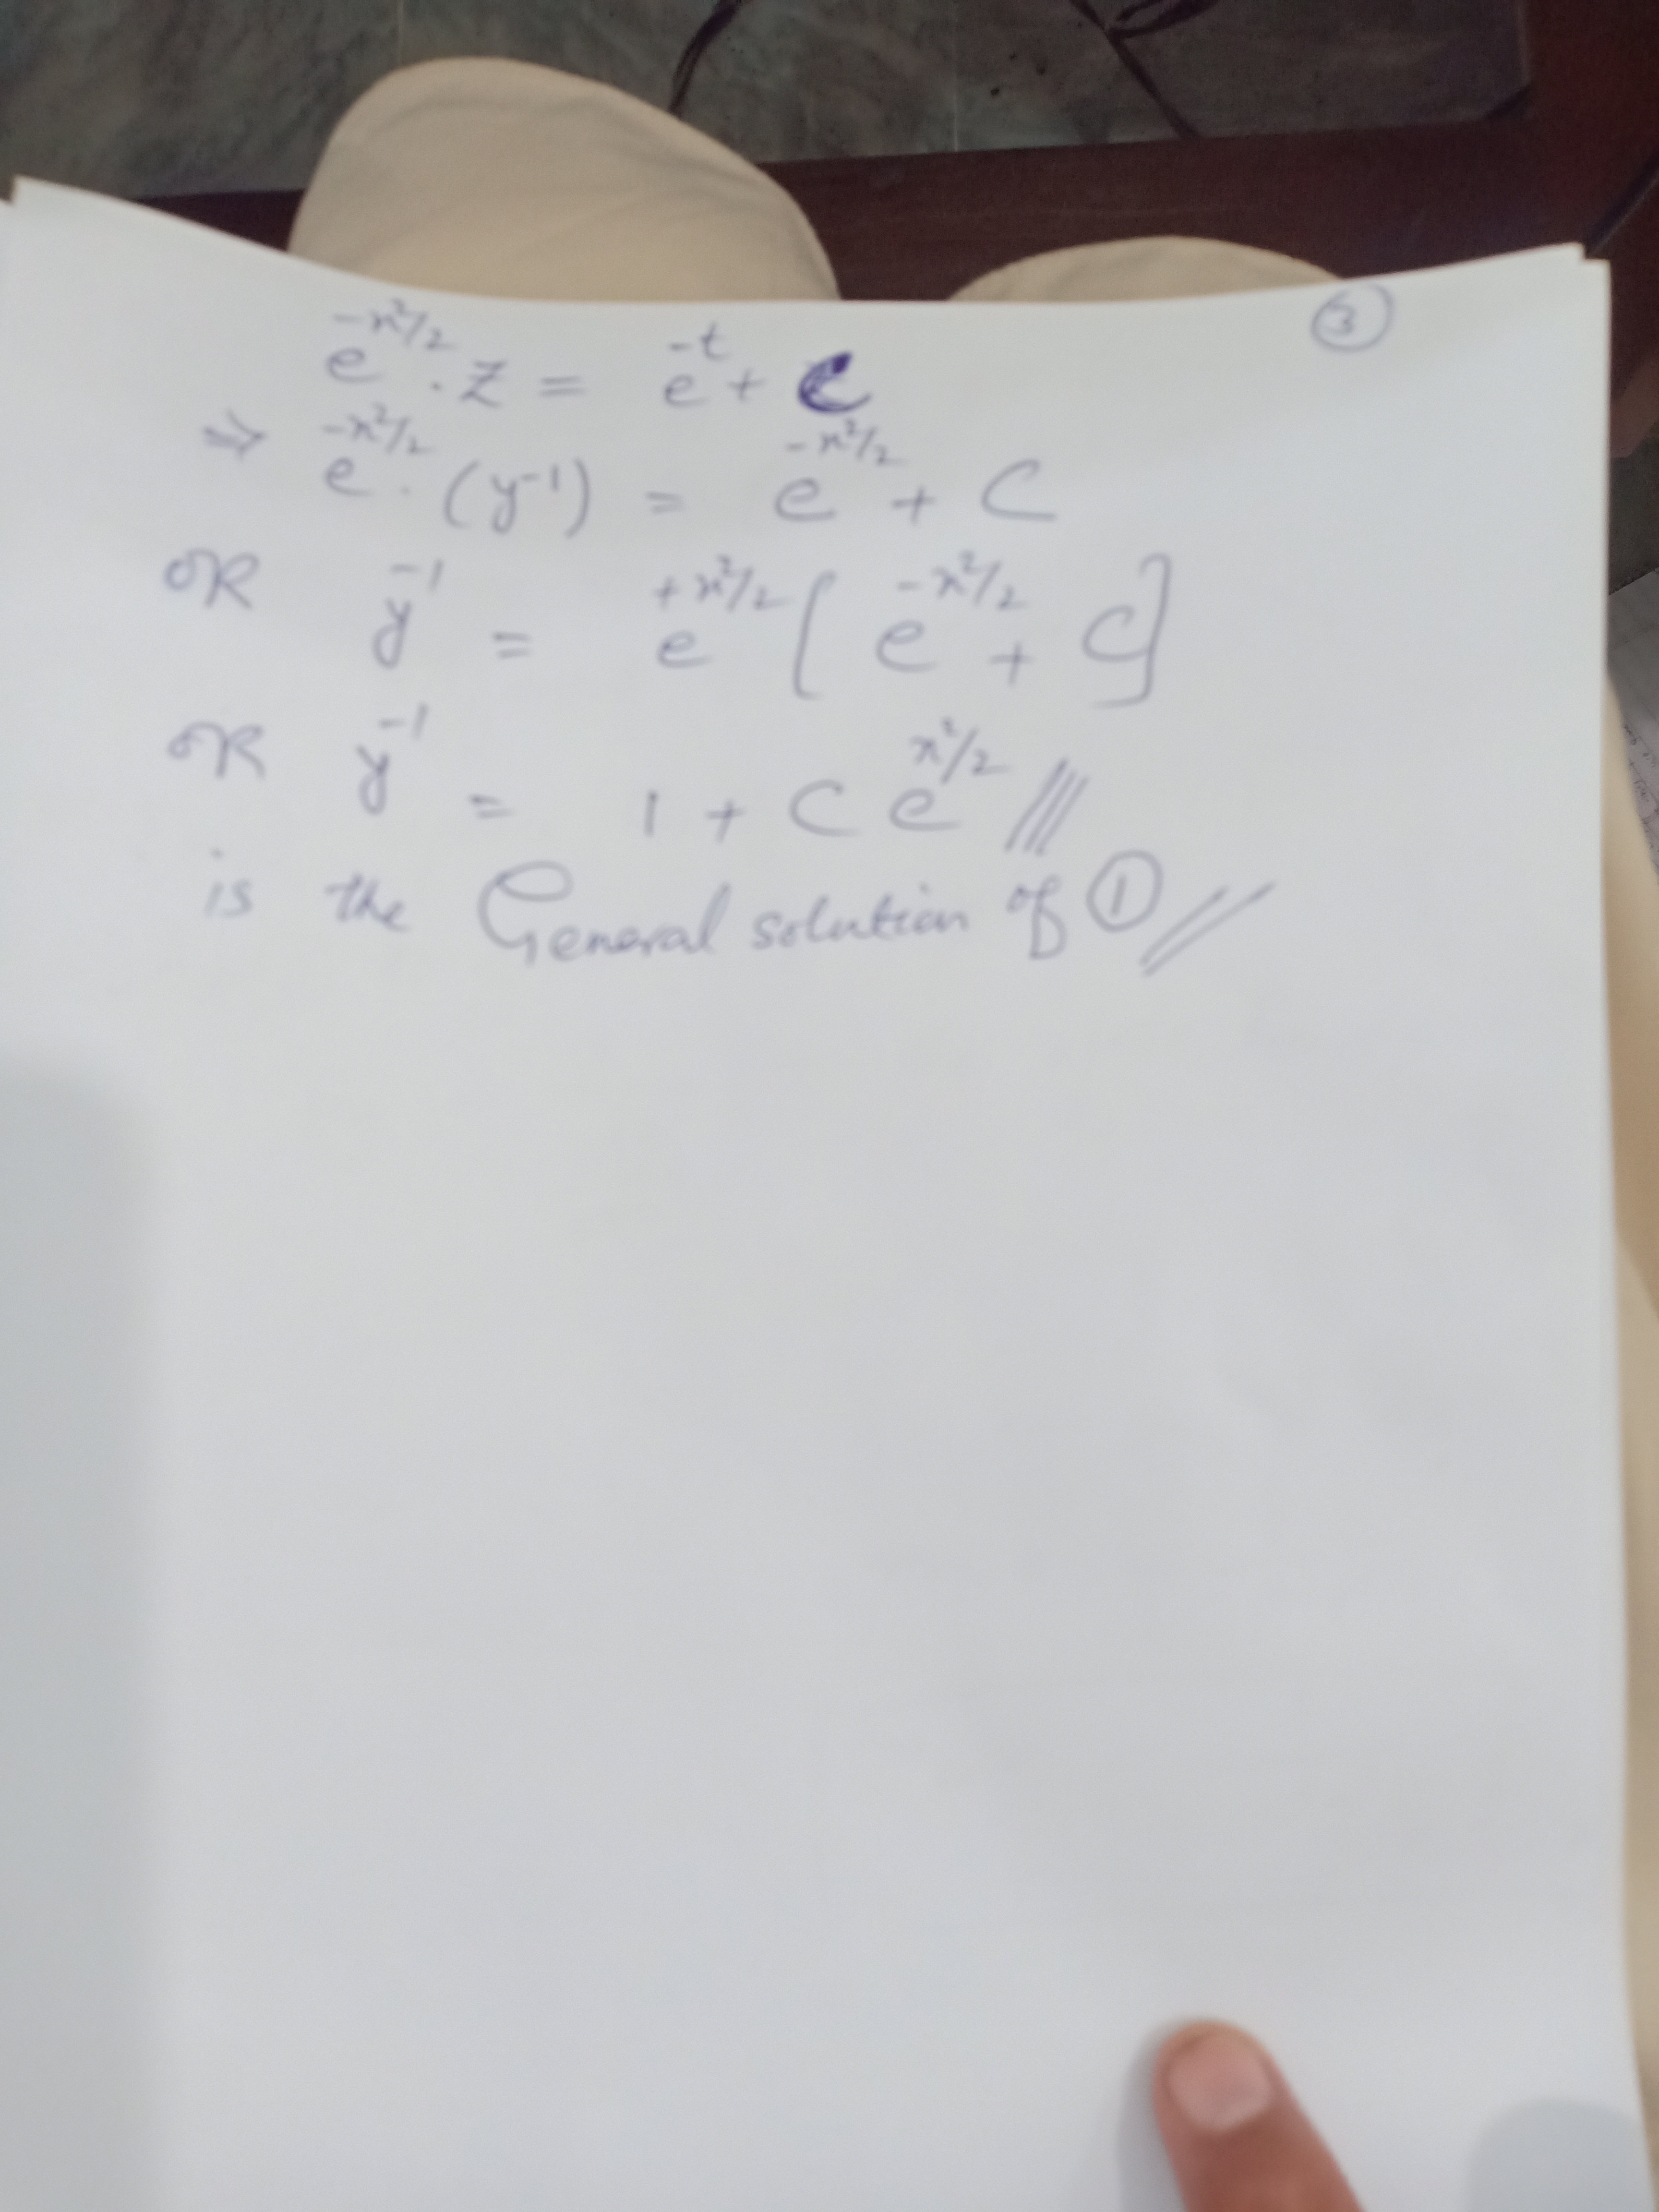 ③
e^{-x²/2} . z = e^{-t} + C
⇒ e^{-x²/2} . (y^{-1}) = e^{-x²/2} + C
OR y^{-1} = e^{+x²/2} [ e^{-x²/2} + C ]
OR y^{-1} = 1 + C e^{x²/2} ///
is the General solution of ① //